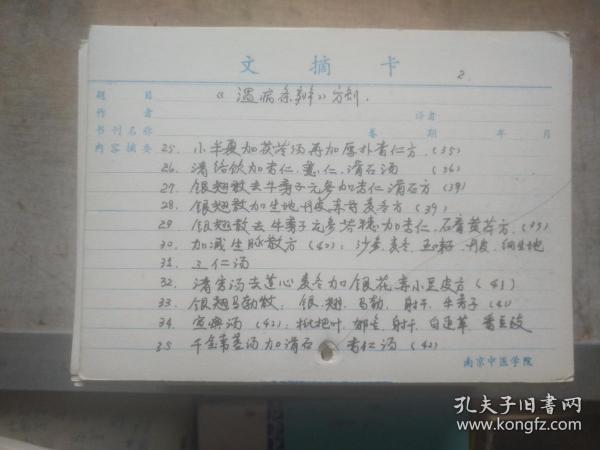 文摘卡
2.
题目 《温病条辨》方剂.
作者 译者
书刊名称 卷 期 年 月
内容摘要 25. 小半夏加茯苓汤再加厚朴杏仁方.(35)
26. 清络饮加杏仁、薏仁、滑石汤 (36)
27. 银翘散去牛蒡子元参加杏仁滑石方 (39)
28. 银翘散加生地、丹皮、赤芍、麦冬方 (39)
29. 银翘散去牛蒡子元参芥穗加杏仁、石膏黄芩方.(39)
30. 加减生脉散方 (40): 沙参、麦冬、五味子、丹皮、细生地
31. 三仁汤
32. 清宫汤去莲心麦冬加银花、赤小豆皮方 (41)
33. 银翘马勃散: 银、翘、马勃、射干、牛蒡子 (41)
34. 宣痹汤 (42): 枇杷叶、郁金、射干、白通草 香豆豉
35 千金苇茎汤加滑石 杏仁汤 (42)
南京中医学院
孔夫子旧书网
www.kongfz.com